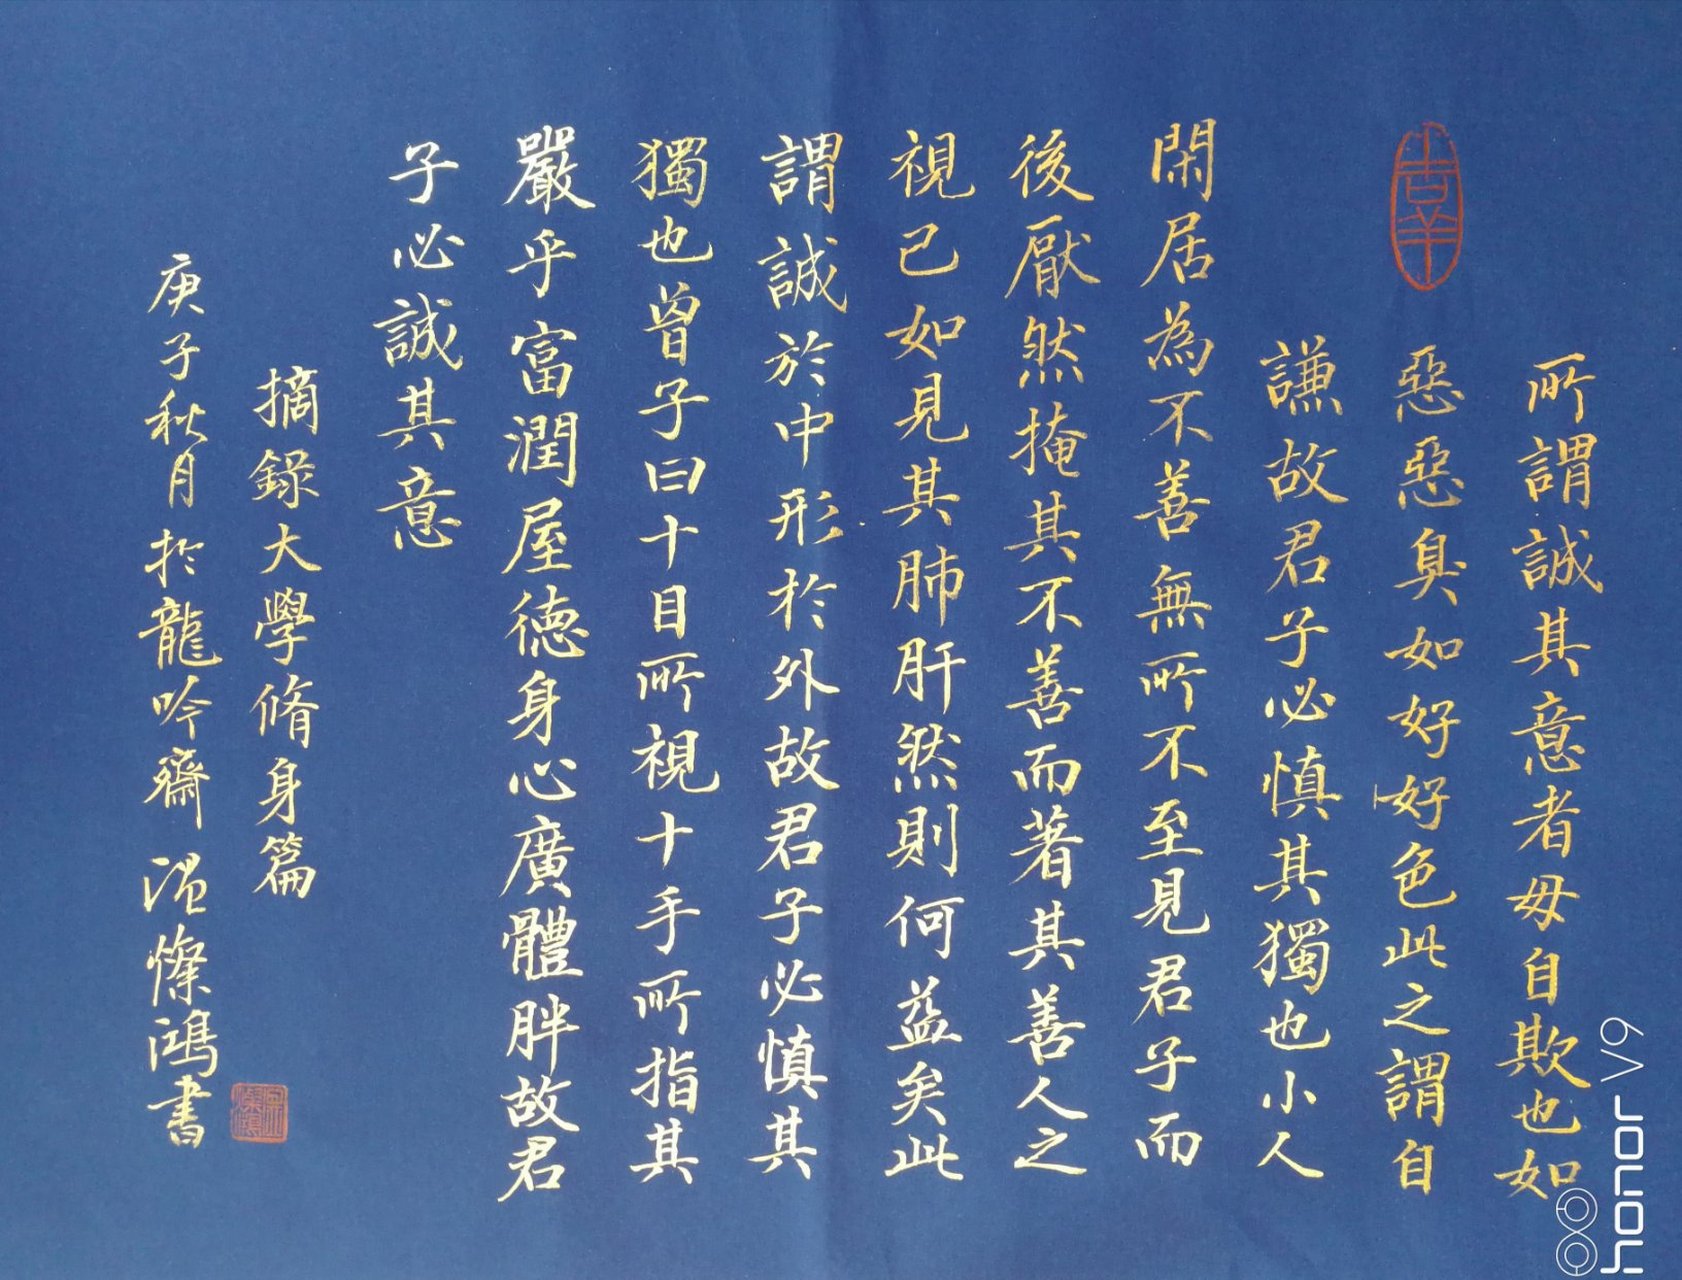 所謂誠其意者毋自欺也如
惡惡臭如好好色此之謂自
謙故君子必慎其獨也小人
閑居為不善無所不至見君子而
後厭然掩其不善而著其善人之
視己如見其肺肝然則何益矣此
謂誠於中形於外故君子必慎其
獨也曾子曰十目所視十手所指其
嚴乎富潤屋德身心廣體胖故君
子必誠其意
摘錄大學脩身篇
庚子秋月於龍吟齋 溫燦鴻書
honor V9